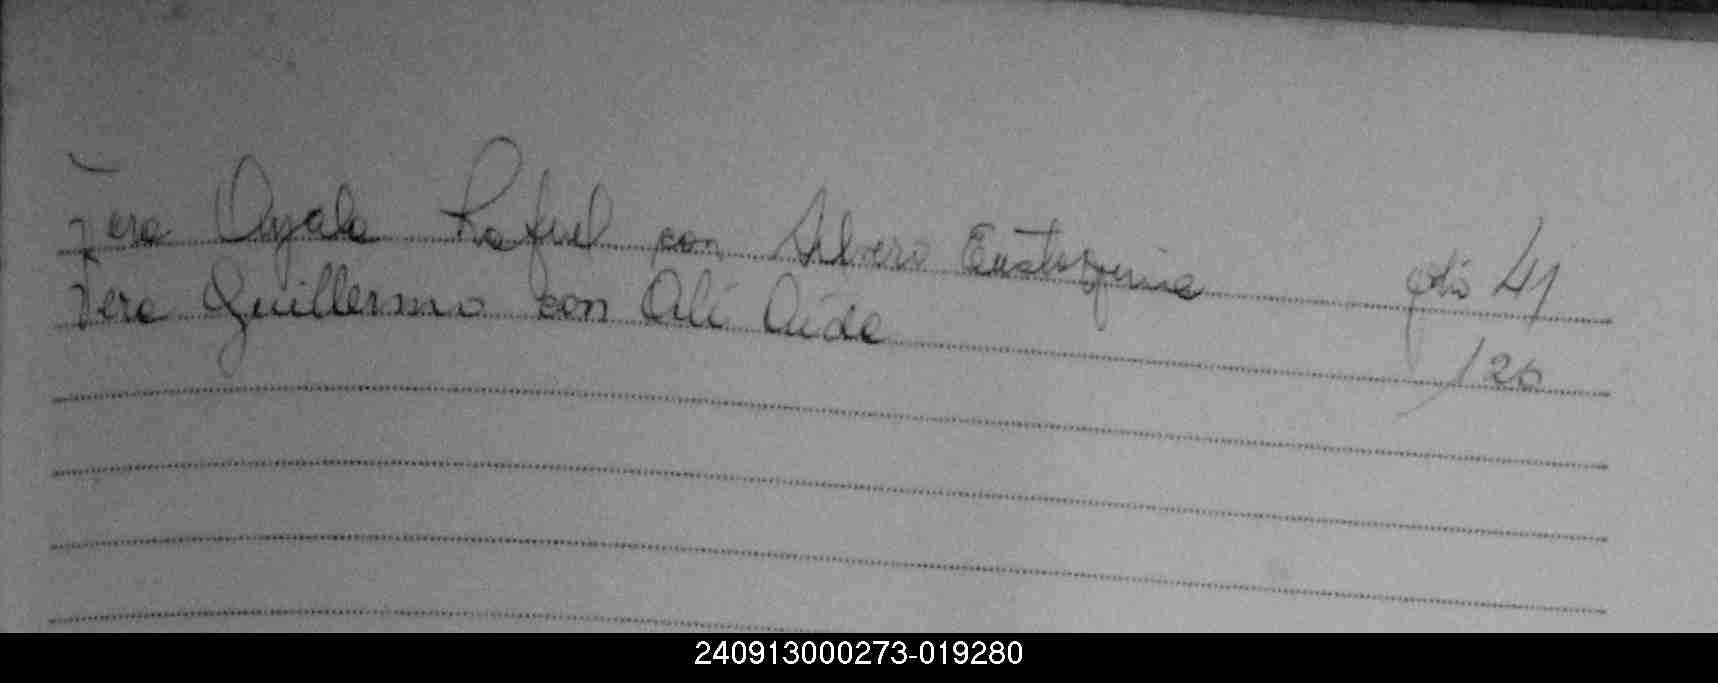 Vera Ayala Rafael con Silvero Eustaquia fdo 41
Vera Guillermo con Ali Aida 120
240913000273-019280